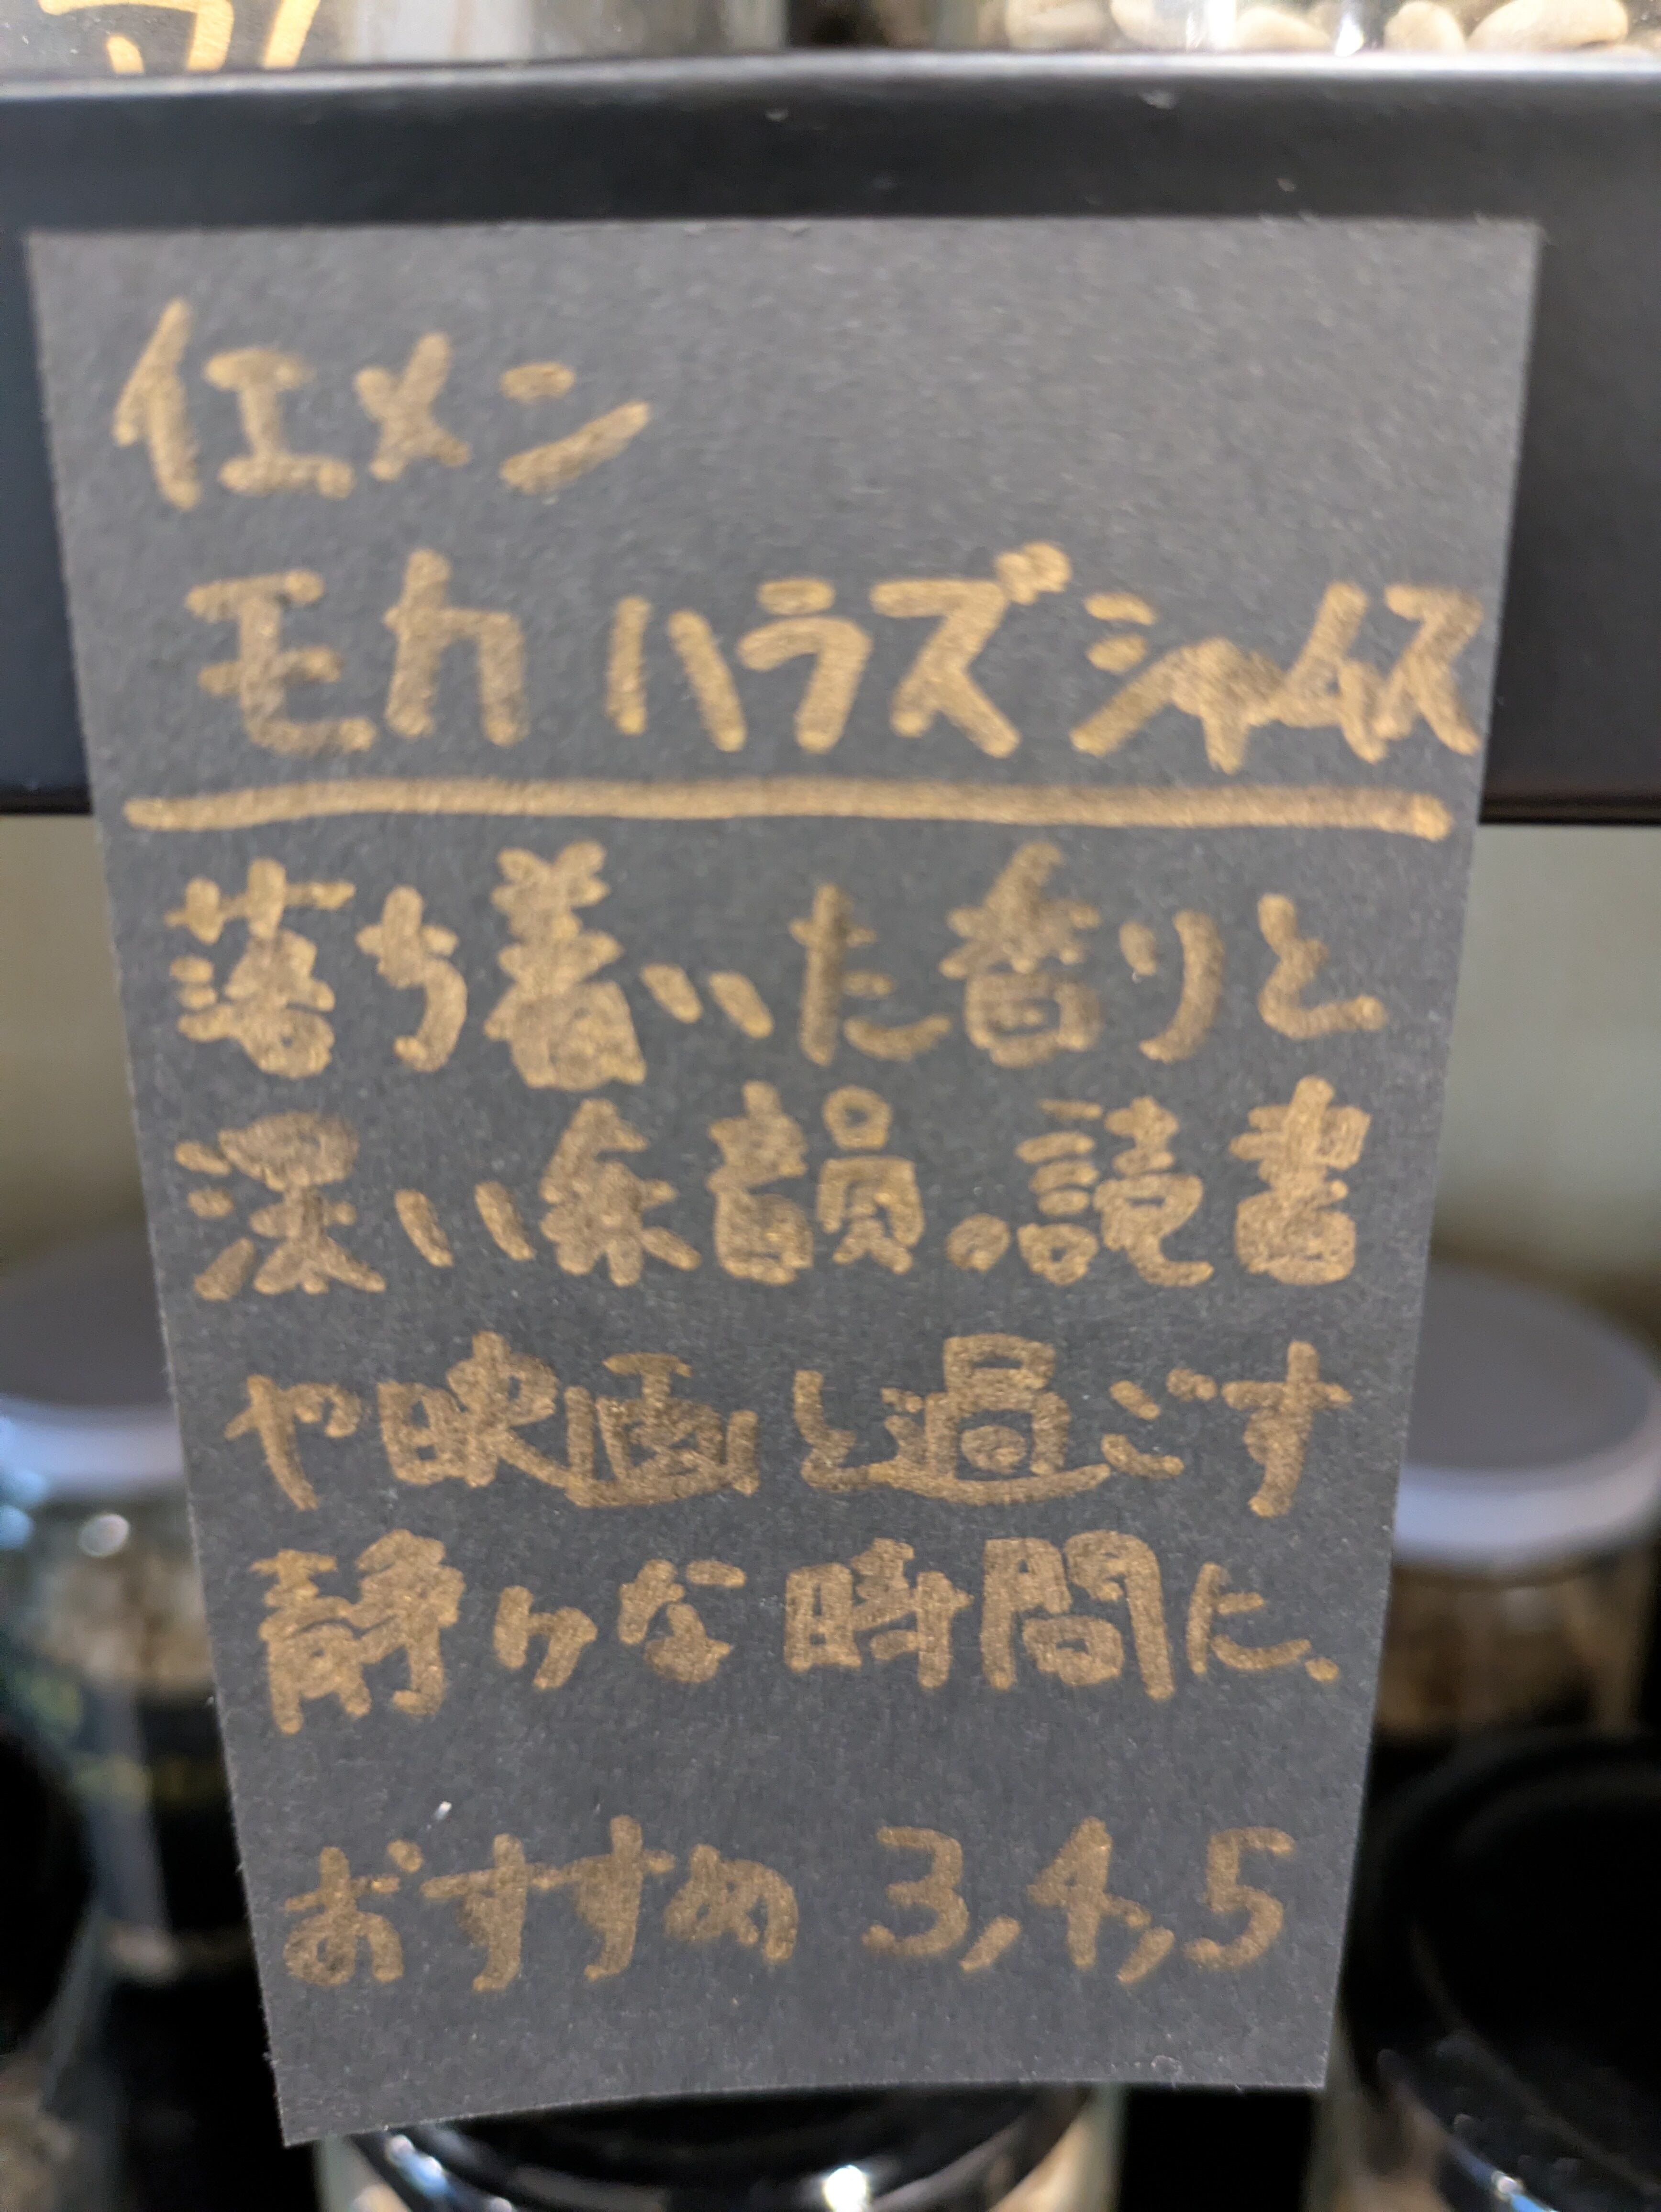 イエメン
モカ ハラズ シャムス
落ち着いた香りと
深い余韻。読書
や映画と過ごす
静かな時間に、
おすすめ 3,4,5